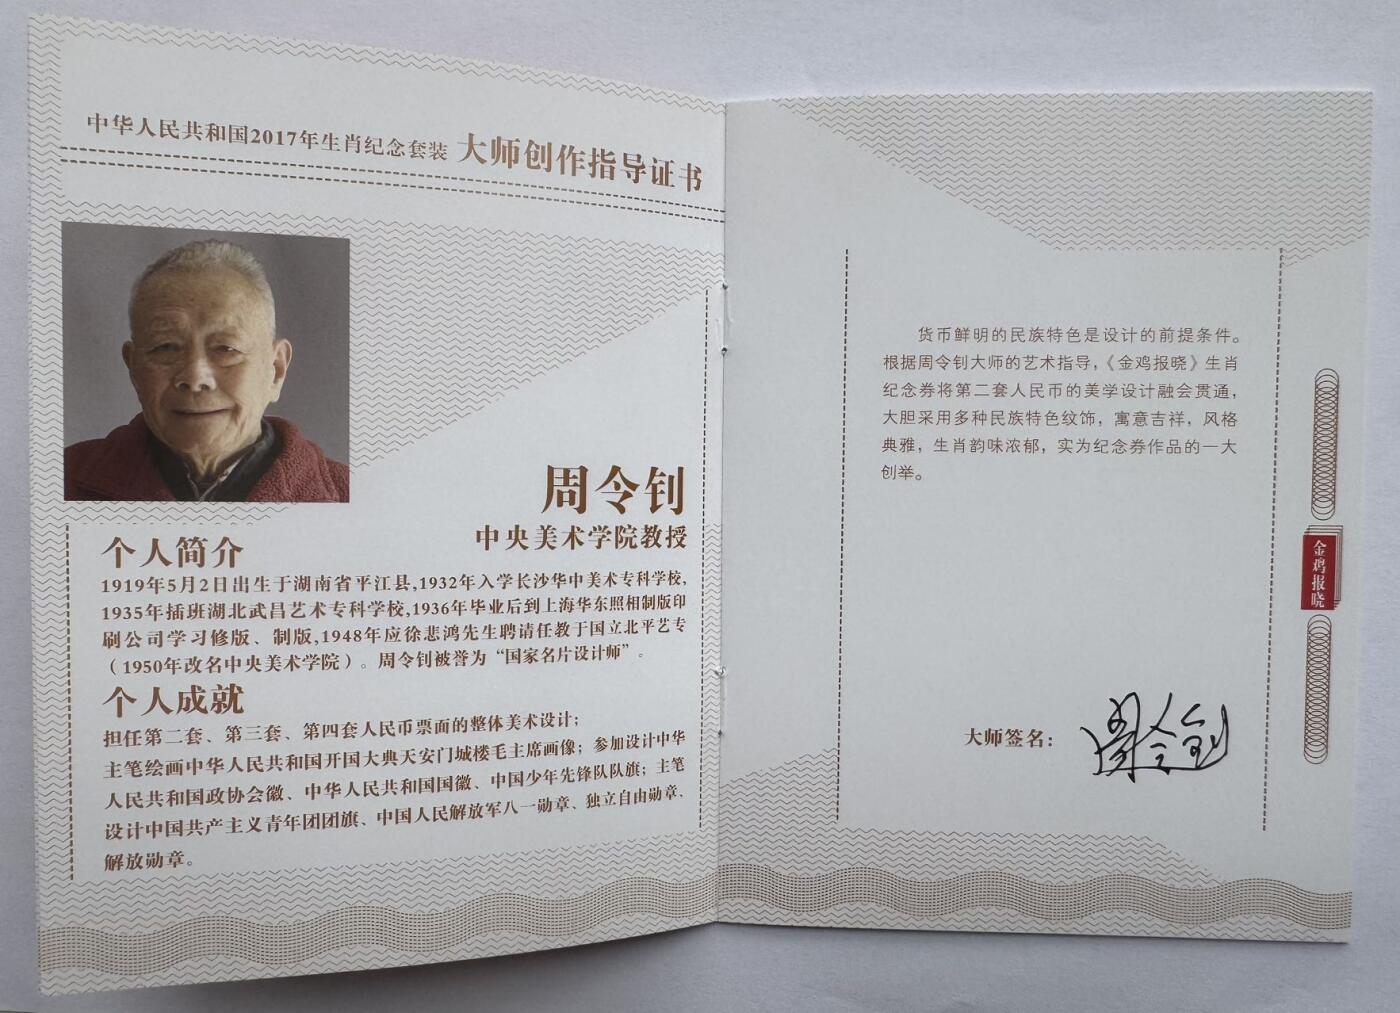 中华人民共和国2017年生肖纪念套装 大师创作指导证书
周令钊
中央美术学院教授
个人简介
1919年5月2日出生于湖南省平江县,1932年入学长沙华中美术专科学校,
1935年插班湖北武昌艺术专科学校,1936年毕业后到上海华东照相制版印
刷公司学习修版、制版,1948年应徐悲鸿先生聘请任教于国立北平艺专
（1950年改名中央美术学院）。周令钊被誉为“国家名片设计师”。
个人成就
担任第二套、第三套、第四套人民币票面的整体美术设计；
主笔绘画中华人民共和国开国大典天安门城楼毛主席画像；参加设计中华
人民共和国政协会徽、中华人民共和国国徽、中国少年先锋队队旗；主笔
设计中国共产主义青年团团旗、中国人民解放军八一勋章、独立自由勋章、
解放勋章。
货币鲜明的民族特色是设计的前提条件。
根据周令钊大师的艺术指导，《金鸡报晓》生肖
纪念券将第二套人民币的美学设计融会贯通，
大胆采用多种民族特色纹饰，寓意吉祥，风格
典雅，生肖韵味浓郁，实为纪念券作品的一大
创举。
大师签名：
周令钊
金鸡报晓